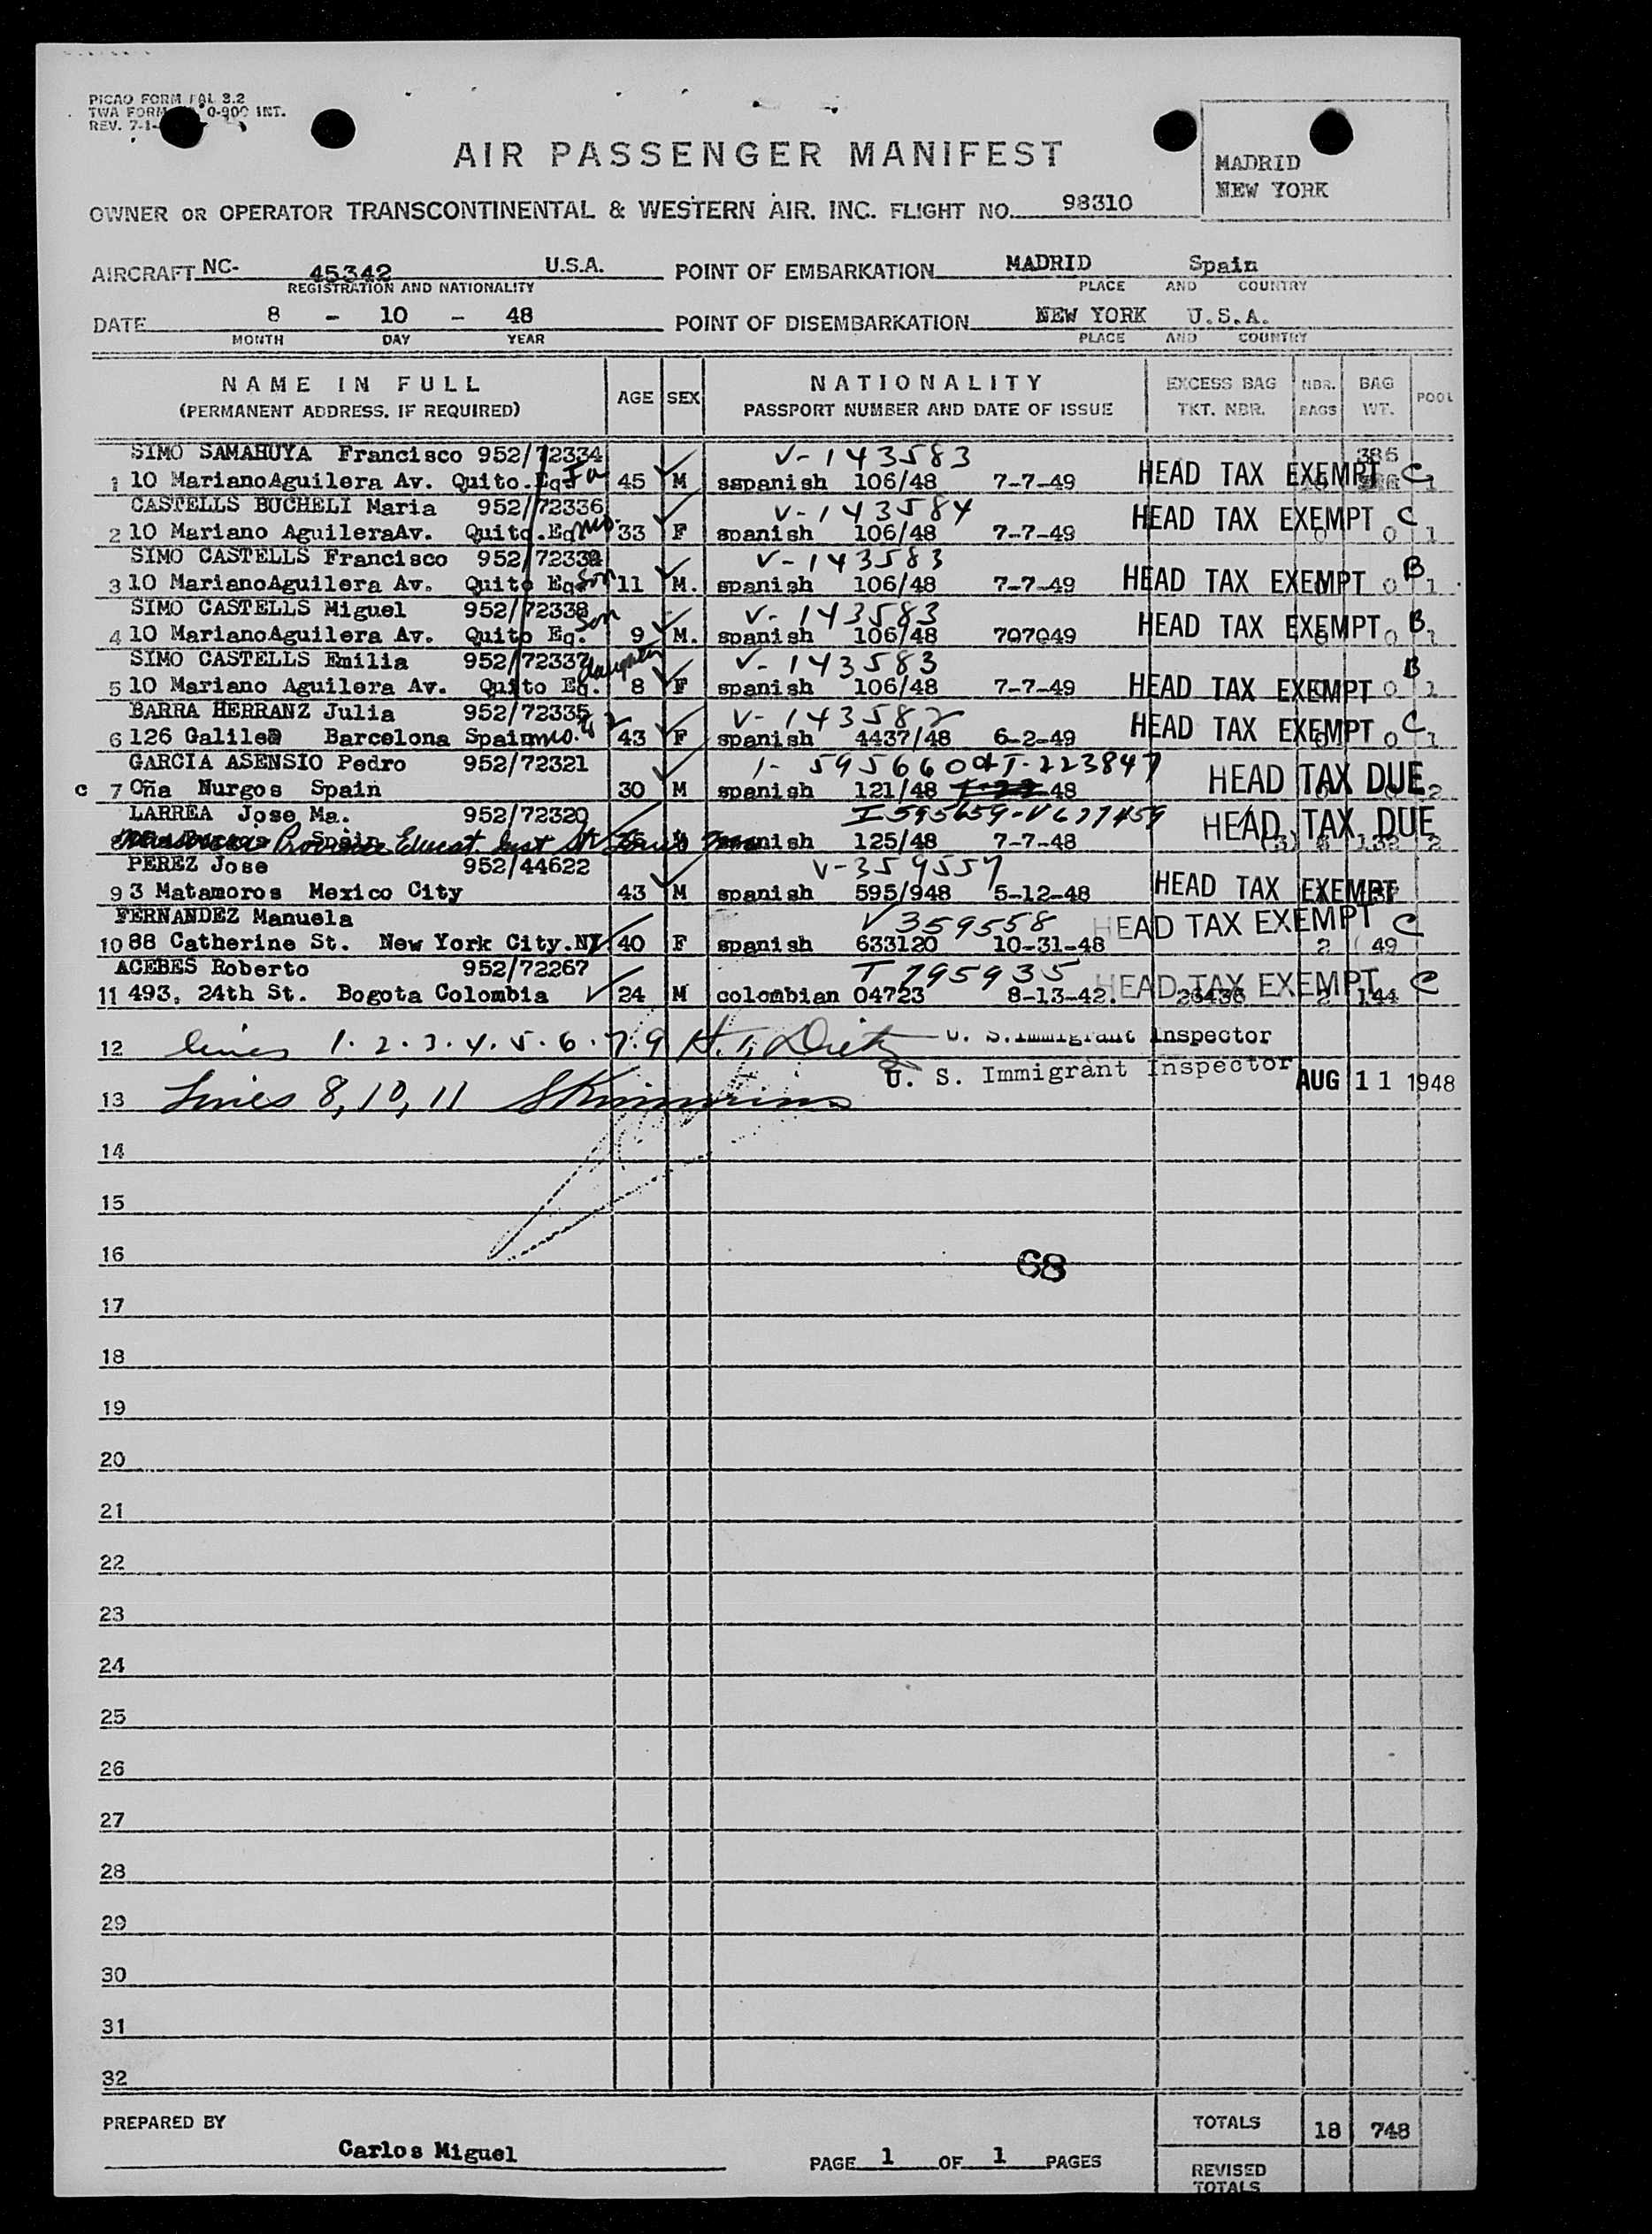 PICAO FORM FAL 3.2
TWA FORM 0-900 INT.
REV. 7-1-
AIR PASSENGER MANIFEST
MADRID
NEW YORK
OWNER OR OPERATOR TRANSCONTINENTAL & WESTERN AIR. INC. FLIGHT NO. 98310
AIRCRAFT NC- 45342 U.S.A. POINT OF EMBARKATION MADRID Spain
REGISTRATION AND NATIONALITY PLACE AND COUNTRY
DATE 8 - 10 - 48 POINT OF DISEMBARKATION NEW YORK U.S.A.
MONTH DAY YEAR PLACE AND COUNTRY
NAME IN FULL AGE SEX NATIONALITY EXCESS BAG NBR. BAG POOL
(PERMANENT ADDRESS. IF REQUIRED) PASSPORT NUMBER AND DATE OF ISSUE TKT. NBR. BAGS WT.
SIMO SAMAHUYA Francisco 952/72334 V-143583 386
1 10 MarianoAguilera Av. Quito.Eq 45 M sspanish 106/48 7-7-49 HEAD TAX EXEMPT C 1
CASTELLS BUCHELI Maria 952/72336 V-143584
2 10 Mariano AguileraAv. Quito.Eq 33 F spanish 106/48 7-7-49 HEAD TAX EXEMPT C 0 0 1
SIMO CASTELLS Francisco 952/72339 V-143583
3 10 MarianoAguilera Av. Quito Eq. Son 11 M. spanish 106/48 7-7-49 HEAD TAX EXEMPT 0 B 1
SIMO CASTELLS Miguel 952/72338 Son V-143583
4 10 MarianoAguilera Av. Quito Eq. 9 M. spanish 106/48 707049 HEAD TAX EXEMPT 0 B 1
SIMO CASTELLS Emilia 952/72337 daughter V-143583
5 10 Mariano Aguilera Av. Quito Eq. 8 F spanish 106/48 7-7-49 HEAD TAX EXEMPT 0 B 1
BARRA HERRANZ Julia 952/72335 V-143582
6 126 Galilea Barcelona Spain 43 F spanish 4437/48 6-2-49 HEAD TAX EXEMPT 0 C 1
GARCIA ASENSIO Pedro 952/72321 I-595660 T-223847
C 7 Oña Nurgos Spain 30 M spanish 121/48 48 HEAD TAX DUE 2
LARREA Jose Ma. 952/72320 I 595659-V677459
8 Province Educat. Inst St Louis spanish 125/48 7-7-48 HEAD TAX DUE 132 2
PEREZ Jose 952/44622 V-359557
9 3 Matamoros Mexico City 43 M spanish 595/948 5-12-48 HEAD TAX EXEMPT
FERNANDEZ Manuela V 359558
10 88 Catherine St. New York City.NY 40 F spanish 633120 10-31-48 HEAD TAX EXEMPT C 2 49
ACEBES Roberto 952/72267 T 795935
11 493, 24th St. Bogota Colombia 24 M colombian 04723 8-13-42. HEAD TAX EXEMPT C 26436 2 144
12 lines 1.2.3.4.5.6.7.9 H. T. Dietz U. S. Immigrant Inspector
U. S. Immigrant Inspector AUG 11 1948
13 Lines 8, 10, 11
14
15
16
68
17
18
19
20
21
22
23
24
25
26
27
28
29
30
31
32
PREPARED BY TOTALS 18 748
Carlos Miguel
PAGE 1 OF 1 PAGES
REVISED
TOTALS